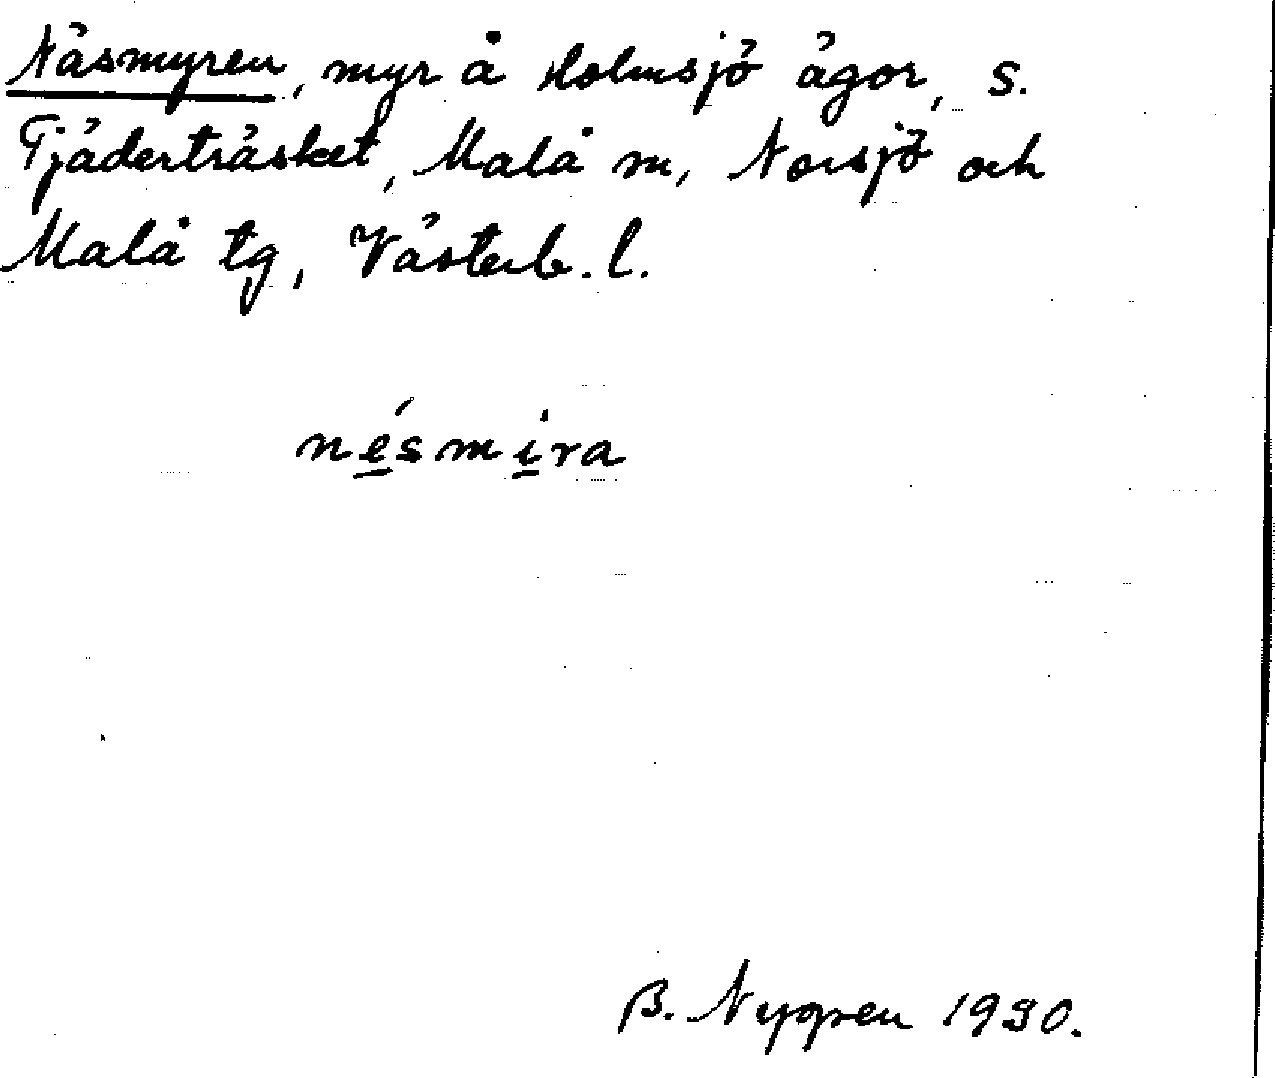 Näsmyren, myr å Holmsjö ägor, s.
Tjäderträsket, Malå sn, Norsjö och
Malå tg, Västerb. l.
nésmíra
B. Nygren 1930.